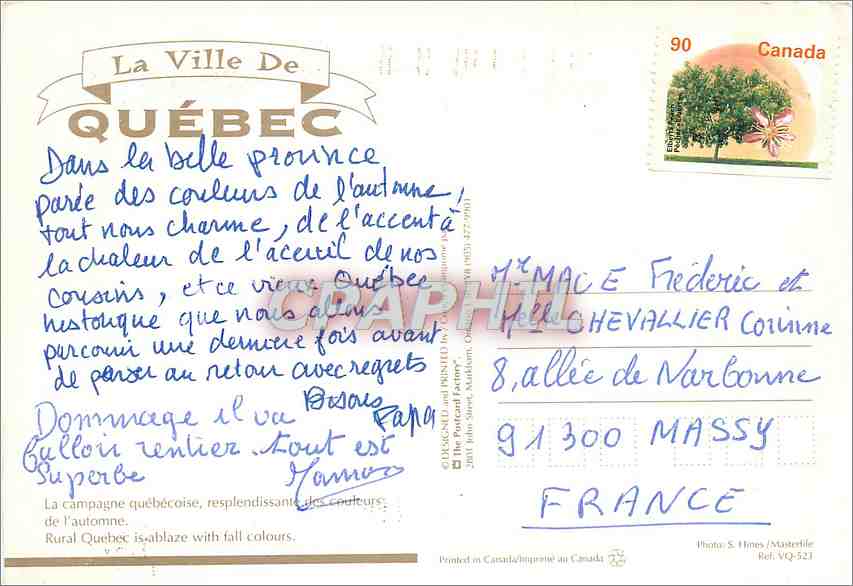 La Ville De
QUÉBEC
Dans la belle province
parée des couleurs de l'automne,
tout nous charme, de l'accent à
la chaleur de l'acceuil de nos
cousins, et ce vieux Québec
historique que nous allons
parcourir une dernière fois avant
de penser au retour avec regrets
Bisous
Papa
Dommage il va
falloir rentrer. tout est
Superbe
Maman
La campagne québécoise, resplendissante des couleurs
de l'automne.
Rural Quebec is ablaze with fall colours.
© DESIGNED and PRINTED by
The Postcard Factory
2801 John Street, Markham, (905) 477-9901
90 Canada
Elberta Peach
CPAPHIL
Mr MACE Fréderic et
Melle CHEVALLIER Corinne
8, allée de Narbonne
91300 MASSY
FRANCE
Photo: S. Hines / Masterfile
Ref: VQ-523
Printed in Canada/Imprimé au Canada